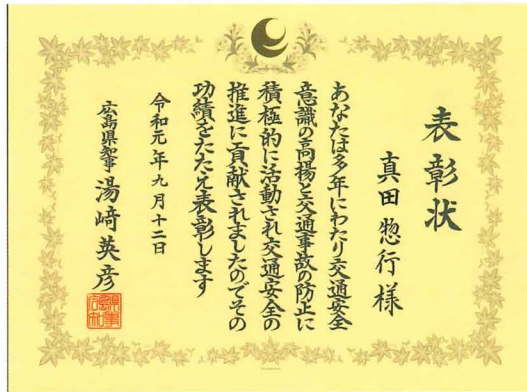 表彰状
真田惣行様
あなたは多年にわたり交通安全
意識の高揚と交通事故の防止に
積極的に活動され交通安全の
推進に貢献されましたのでその
功績をたたえ表彰します
令和元年九月十二日
広島県知事 湯﨑英彦